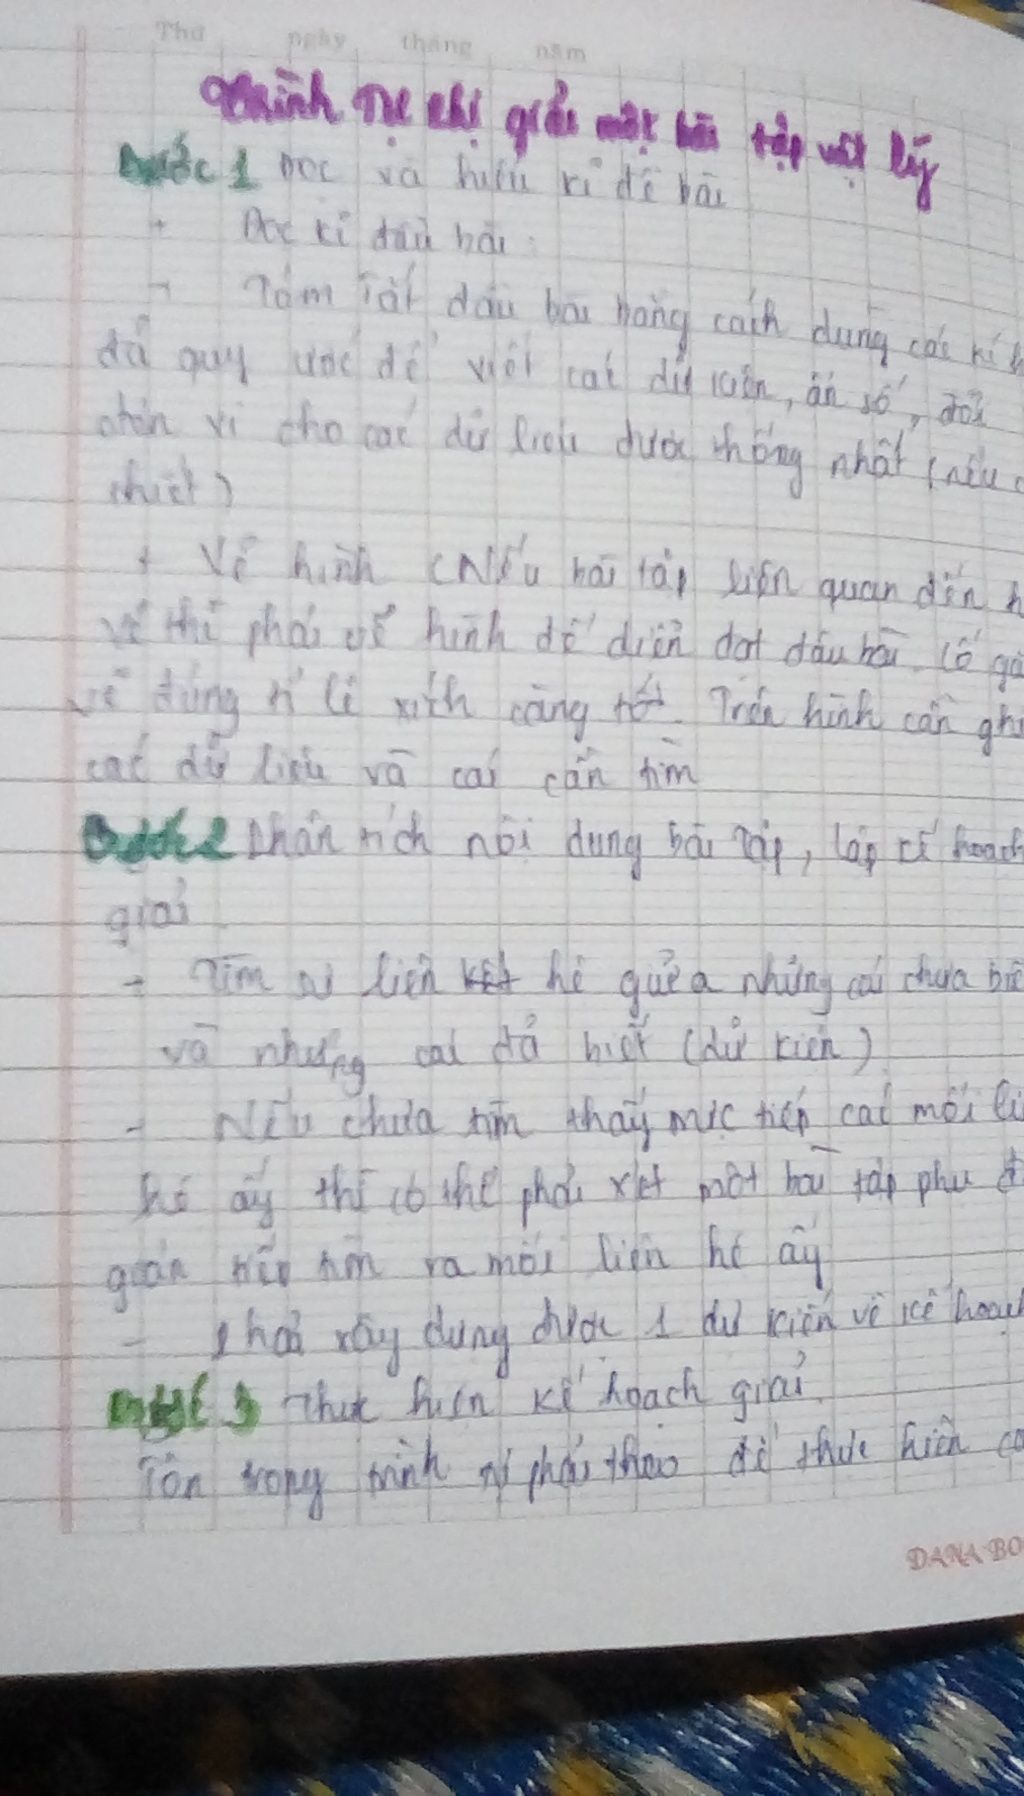 Thứ ngày tháng năm
giải một bài tập vật lý
Bước 1 Đọc và hiểu kĩ đề bài
+ Đọc kĩ đầu bài
- Tóm tắt đầu bài bằng cách dùng các kí
đã quy ước để viết các dữ kiện, ẩn số, đổi
đơn vị cho các dữ liệu được thống nhất (nếu
thiết)
+ Vẽ hình (Nếu bài tập liên quan đến
vẽ thì phải vẽ hình để diễn đạt đầu bài. Cố
vẽ đúng tỉ lệ xích càng tốt. Trên hình cần ghi
các dữ liệu và cái cần tìm
Bước 2 Phân tích nội dung bài tập, lập kế hoạch
giải
- Tìm sự liên hệ giữa những cái chưa
và những cái đã biết (dữ kiện)
- Nếu chưa tìm thấy trực tiếp các mối
hệ ấy thì có thể phải xét một bài tập phụ
gián tiếp tìm ra mối liên hệ ấy
- Phải xây dựng được 1 dự kiến về kế hoạch
Bước 3 Thực hiện kế hoạch giải
Tôn trọng trình tự phải theo để thực hiện
DANA BO